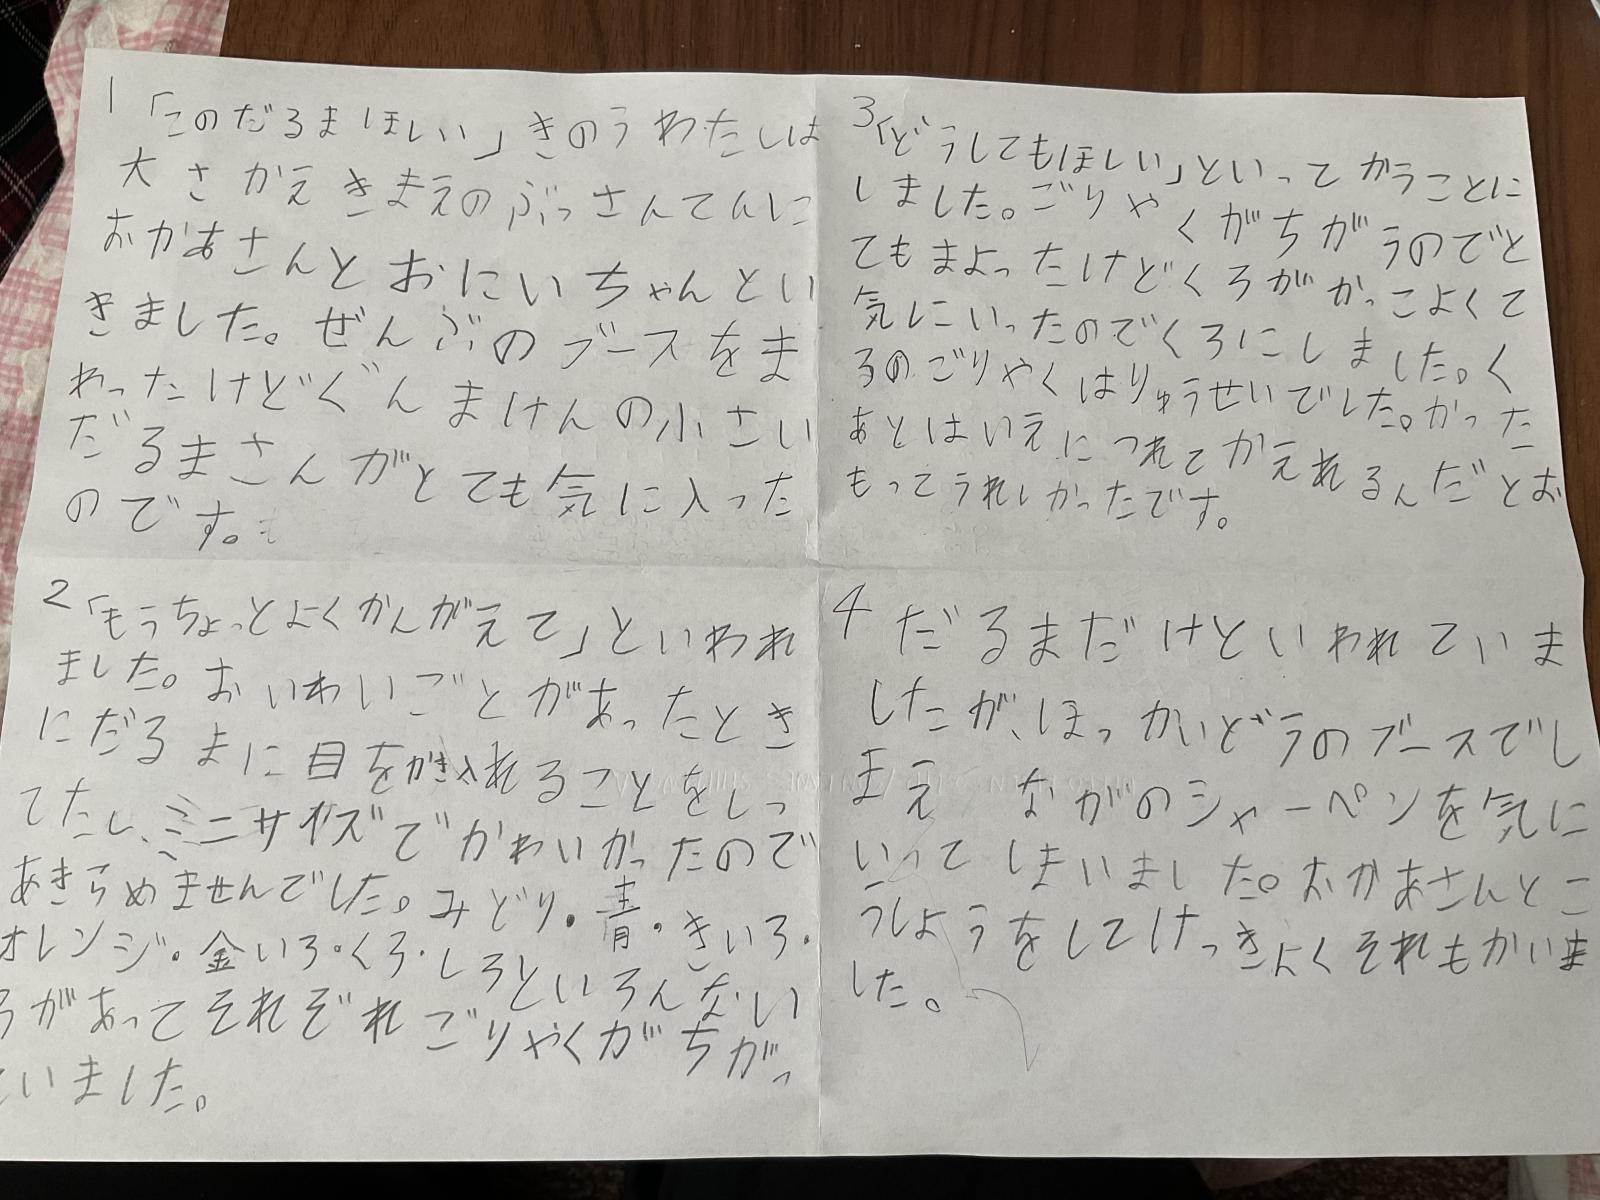 1
「このだるまほしい」きのうわたしは
大さかえきまえのぶっさんてんに
おかあさんとおにいちゃんとい
きました。ぜんぶのブースをま
わったけどぐんまけんの小さい
だるまさんがとても気に入った
のです。
2
「もうちょっとよくかんがえて」といわれ
ました。おいわいごとがあったとき
にだるまに目をかき入れることをしっ
てたし、ミニサイズでかわいかったので
あきらめませんでした。みどり・青・きいろ・
オレンジ・金いろ・くろ・しろといろんない
ろがあってそれぞれごりやくがちがっ
ていました。
3
「どうしてもほしい」といってかうことに
しました。ごりやくがちがうのでと
てもまよったけどくろがかっこよくて
気にいったのでくろにしました。く
ろのごりやくはりゅうせいでした。かった
あとはいえにつれてかえれるんだとお
もってうれしかったです。
4
だるまだけといわれていま
したが、ほっかいどうのブースでし
まえながのシャーペンを気に
いってしまいました。おかあさんとこ
うしょうをしてけっきょくそれもかいま
した。